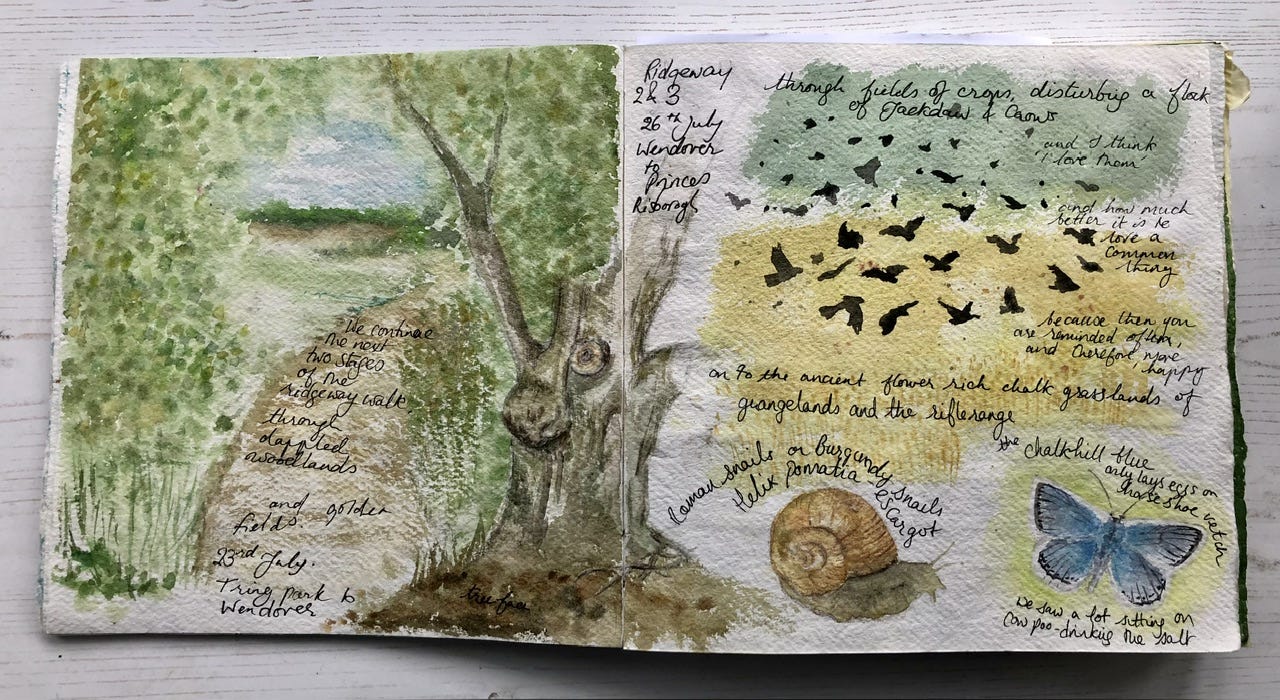 We continue
the next
two stages
of the
ridgeway walk,
through
dappled
woodlands
and golden
fields.
23rd July.
Tring park to
Wendover
tree face
Ridgeway
2 & 3
26th July
Wendover
to
Princes
Risborogh
through fields of crops, disturbing a flock
of Jackdaw & Crows
and I think
'I love them'
and how much
better it is to
love a
common
thing
because then you
are reminded often,
and therefore more
happy
on to the ancient flower rich chalk grasslands of
grangelands and the riflerange
Roman snails or Burgundy snails
Helix Pomatia escargot
the chalkhill blue
only lays eggs on
horse shoe vetch
We saw a lot sitting on
cow poo-drinking the salt